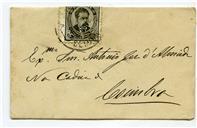 Exmo Snr. Antonio José d'Almeida
Na Cadeia de
Coimbra